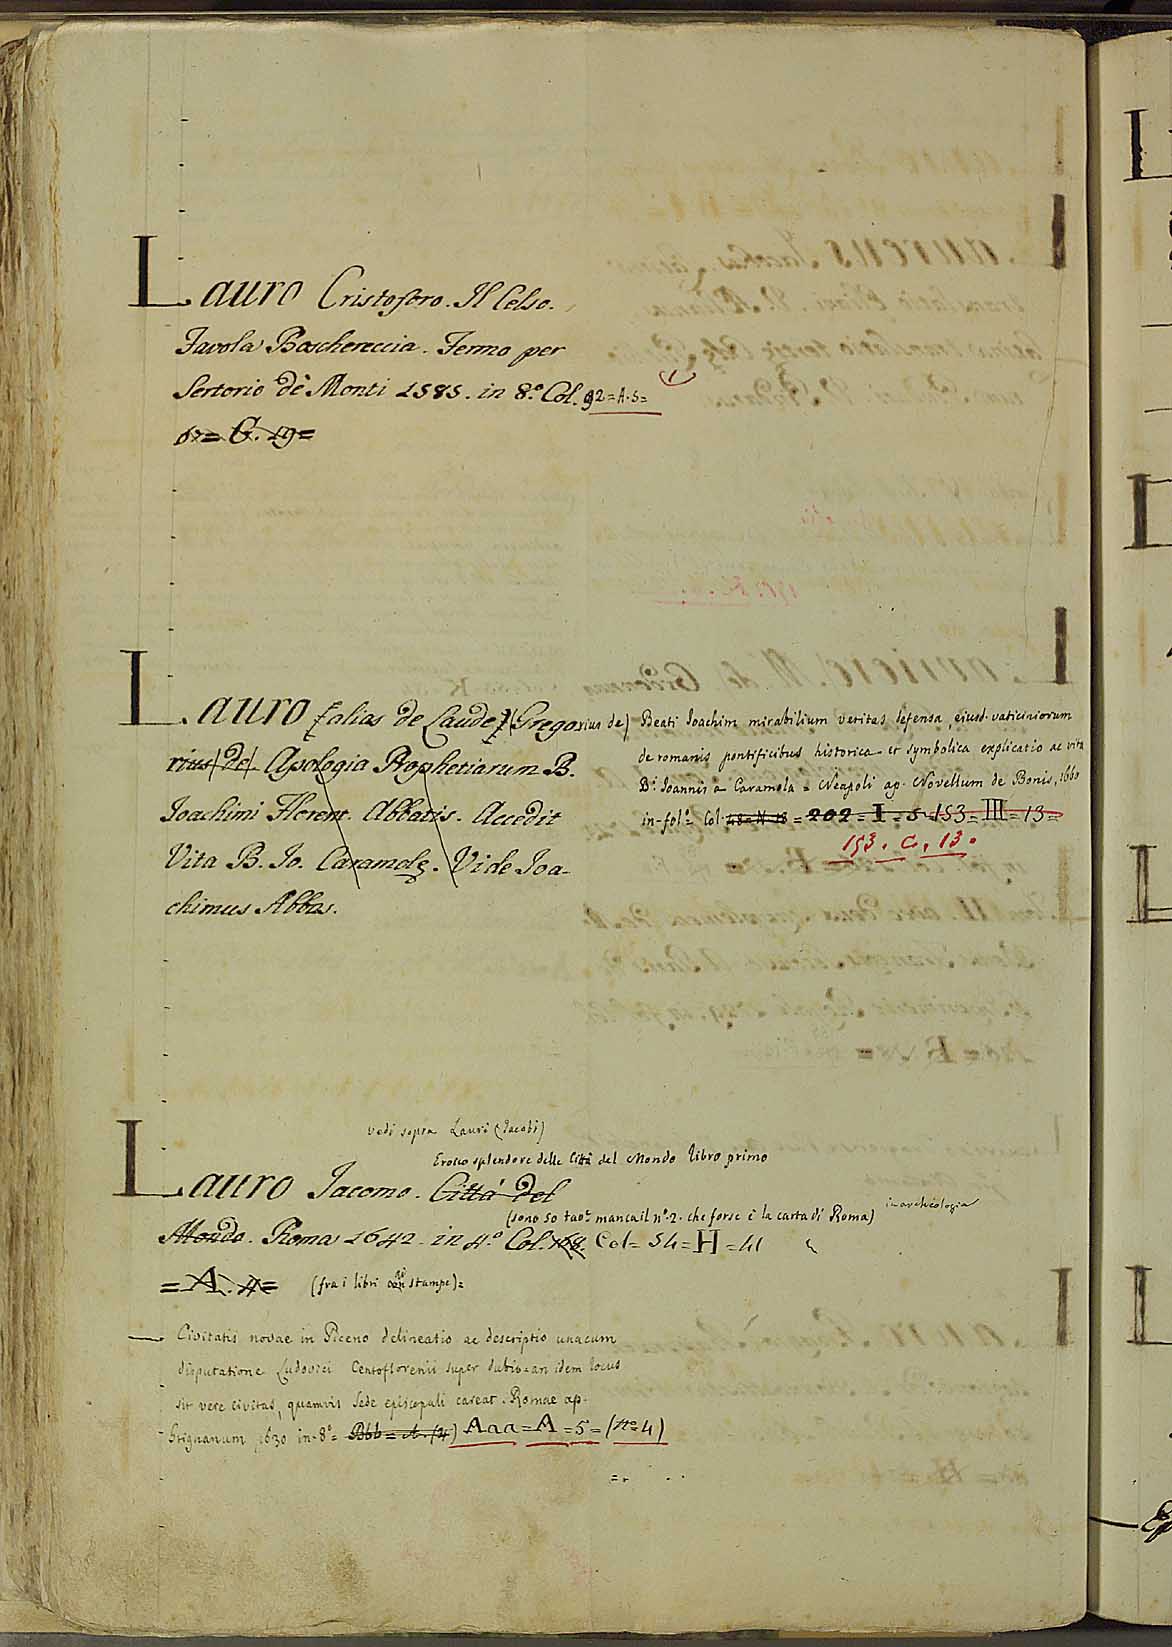 Lauro Cristoforo. Il Celso.
Favola Boschereccia. Fermo per
Sertorio dè Monti 1585. in 8.º Col. 92=A.5=
67= G. 19=
Lauro (alias de Laude) (Gregorius de)
rius de Apologia Prophetiarum B.
Joachimi Florent. Abbatis. Accedit
Vita B. Jo. Caramolę. Vide Joa-
chimus Abbas.
Beati Joachim mirabilium veritas defensa, eiusd. vaticiniorum
de romanis pontificibus historica et symbolica explicatio ac vita
B.i Joannis a Caramola = Neapoli ap. Novellum de Bonis, 1660
in-fol.º Col. 48=N=18 = 202 = I = 5 153 = III = 13=
153. C. 13.
vedi sopra Lauri (Jacobi)
Eroico splendore delle Città del Mondo libro primo
Lauro Jacomo. Città del
(sono 50 tav.e manca il nº. 2. che forse è la carta di Roma)
in archeologia
Mondo. Roma 1642. in 4.º Col. 168. Col= 54=H=41
= A. 4= (fra i libri con stampe)=
Civitatis novae in Piceno delineatio ac descriptio unacum
disputatione Ludovici Centoflorenii super dubio=an idem locus
sit vere civitas, quamvis Sede episcopali careat. Romae ap.
Grignanum 1630 in=8º= Bbb = A. (4) Aaa=A=5=(nº=4)